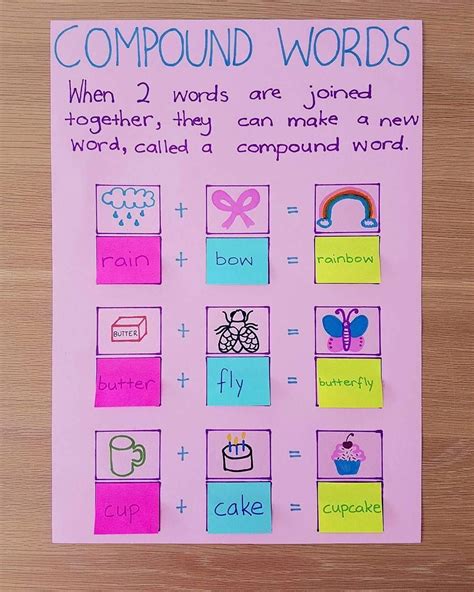 COMPOUND WORDS
When 2 words are joined
together, they can make a new
word, called a compound word.
+ =
rain + bow = rainbow
BUTTER + =
butter + fly = butterfly
+ =
cup + cake = cupcake